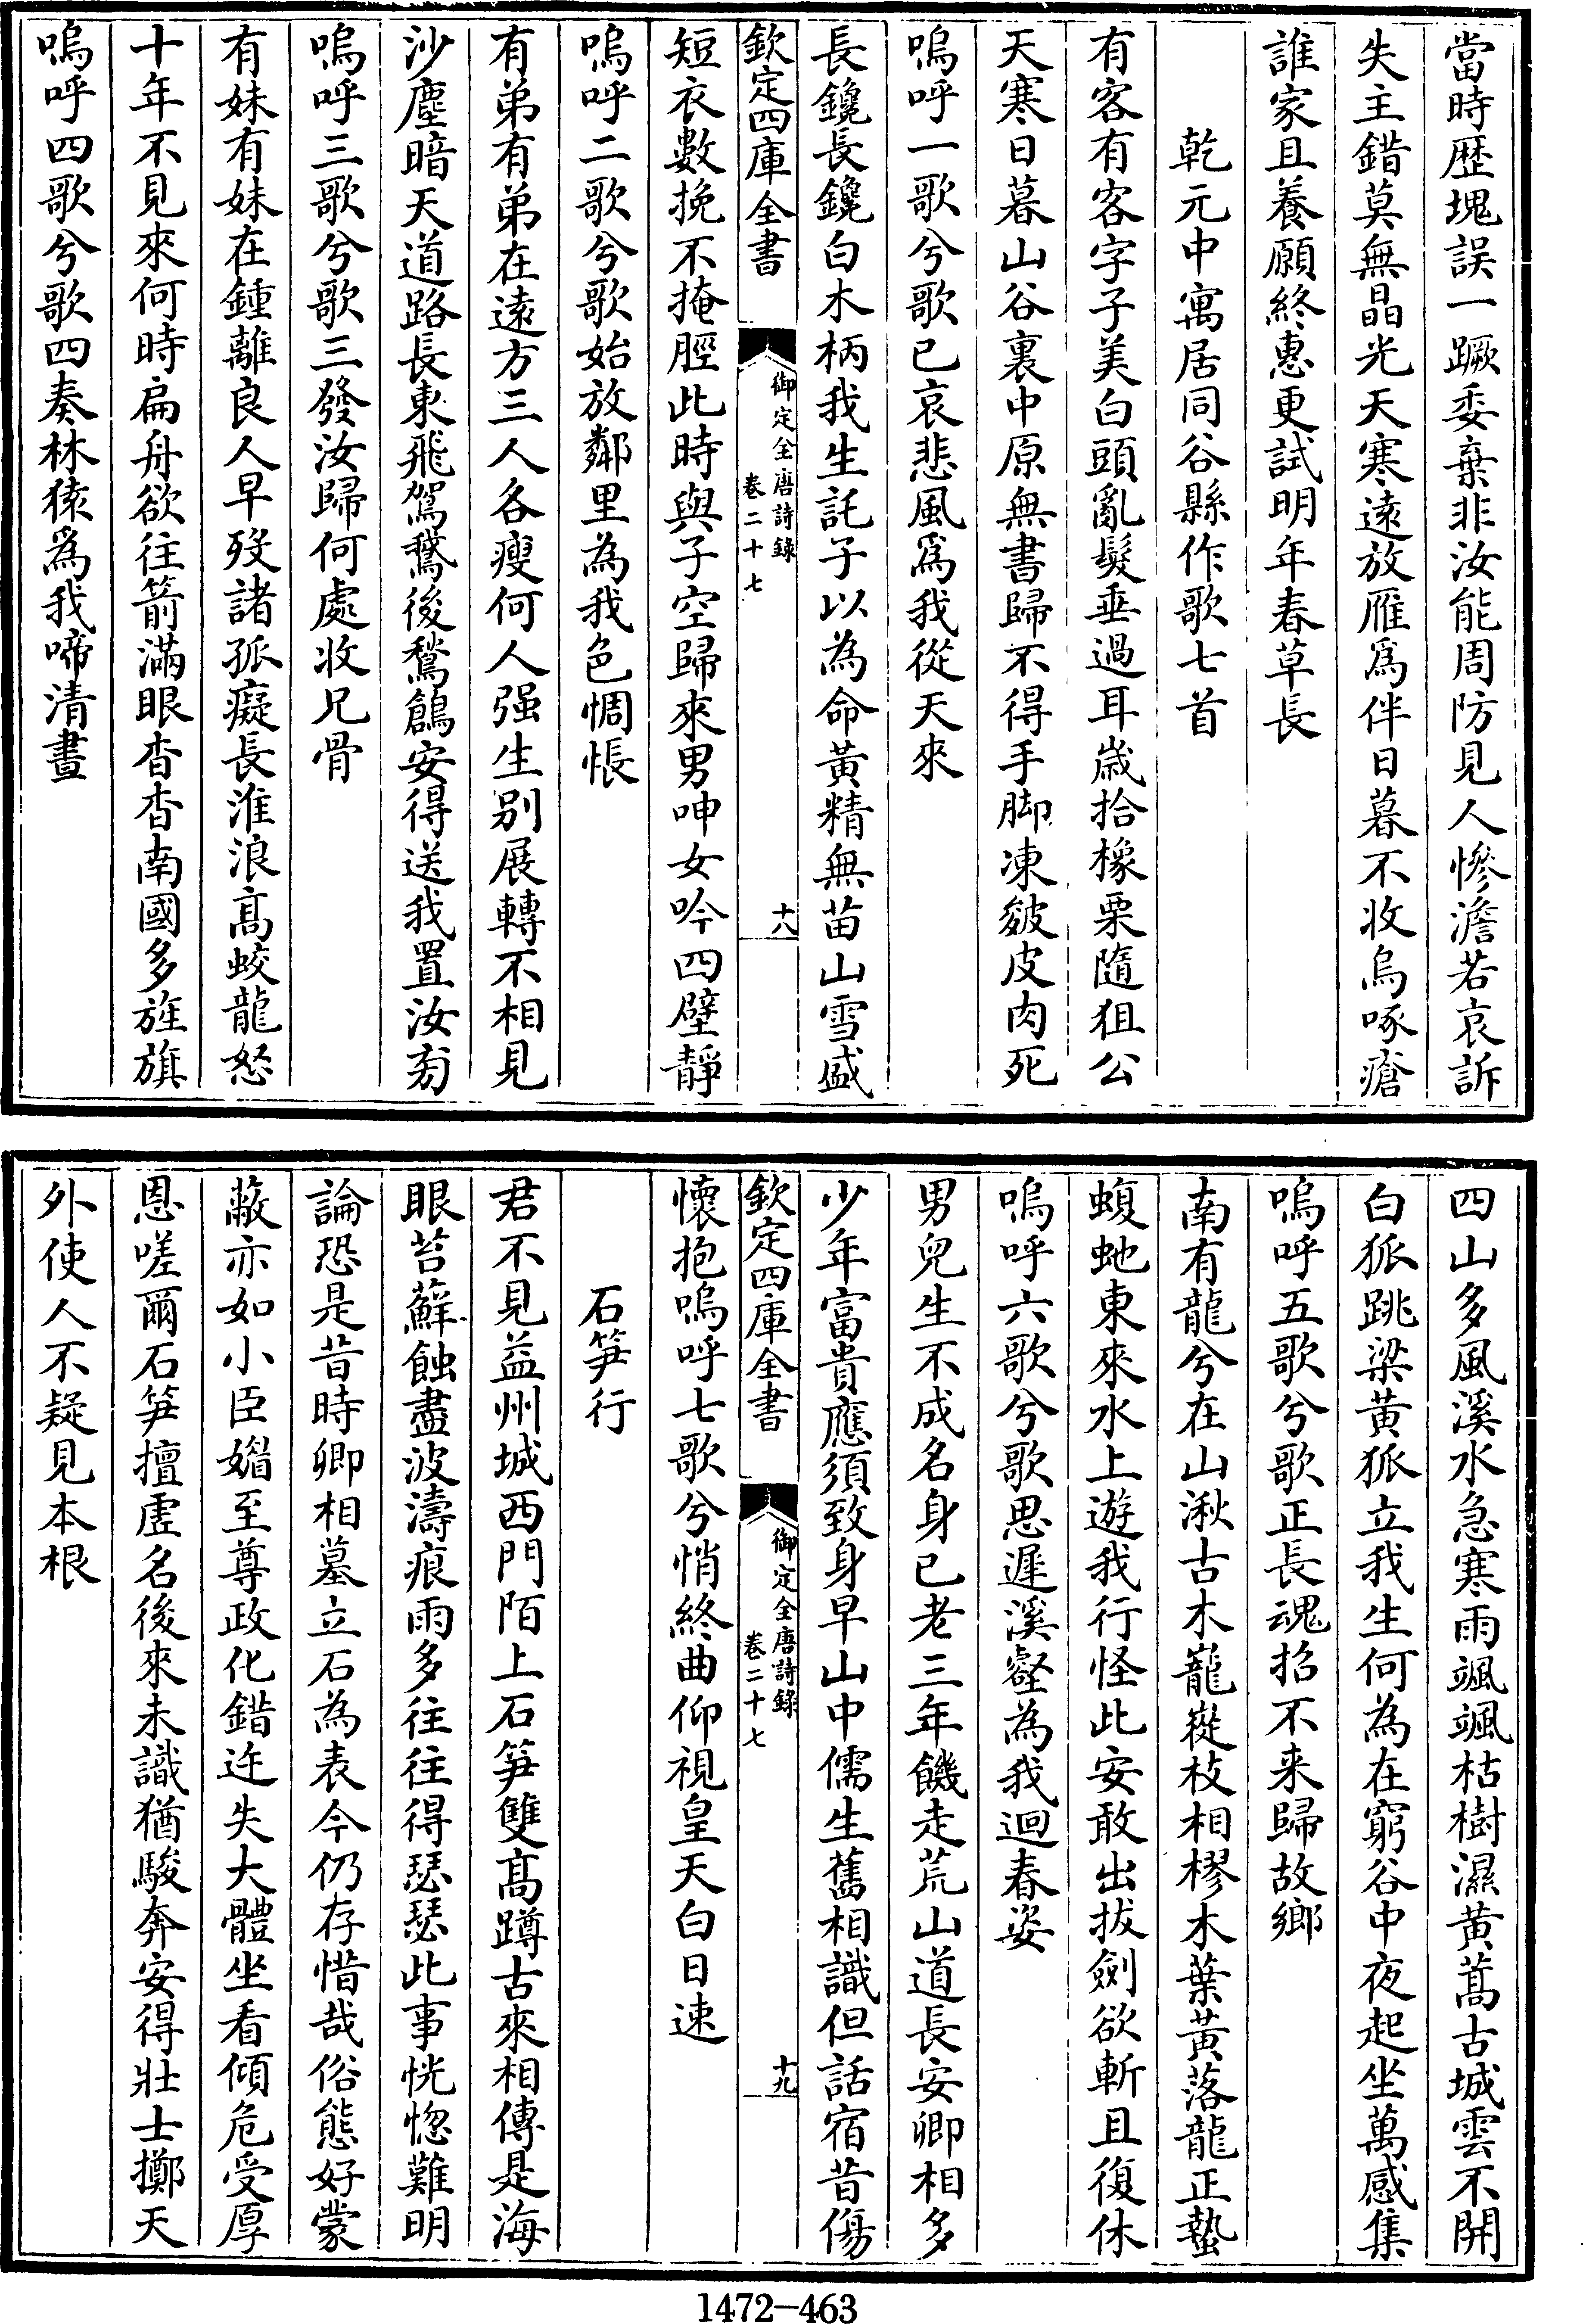 當時歴塊誤一蹶委棄非汝能周防見人慘澹若哀訴
失主錯莫無晶光天寒遠放雁爲伴日暮不收烏啄瘡
誰家且養願終惠更試明年春草長
乾元中寓居同谷縣作歌七首
有客有客字子美白頭亂髮垂過耳嵗拾橡栗隨狙公
天寒日暮山谷裏中原無書歸不得手脚凍皴皮肉死
嗚呼一歌兮歌已哀悲風爲我從天來
長鑱長鑱白木柄我生託子以為命黃精無苗山雪盛
欽定四庫全書
御定全唐詩錄
卷二十七
十八
短衣數挽不掩脛此時與子空歸來男呻女吟四壁靜
嗚呼二歌兮歌始放鄰里為我色惆悵
有弟有弟在遠方三人各瘦何人强生别展轉不相見
沙塵暗天道路長東飛駕鵞後鶖鶬安得送我置汝㫄
嗚呼三歌兮歌三發汝歸何處收兄骨
有妹有妹在鍾離良人早歿諸孤癡長淮浪髙蛟龍怒
十年不見來何時扁舟欲往箭滿眼杳杳南國多旌旗
嗚呼四歌兮歌四奏林猿爲我啼清晝
四山多風溪水急寒雨颯颯枯樹濕黄蒿古城雲不開
白狐跳梁黄狐立我生何為在窮谷中夜起坐萬感集
嗚呼五歌兮歌正長魂招不来歸故鄉
南有龍兮在山湫古木巃嵸枝相樛木葉黄落龍正蟄
蝮虵東來水上遊我行怪此安敢出拔劍欲斬且復休
嗚呼六歌兮歌思遲溪壑為我迴春姿
男兒生不成名身已老三年饑走荒山道長安卿相多
少年富貴應須致身早山中儒生舊相識但話宿昔傷
欽定四庫全書
御定全唐詩錄
卷二十七
十九
懷抱嗚呼七歌兮悄終曲仰視皇天白日速
石笋行
君不見益州城西門陌上石笋雙髙蹲古來相傳是海
眼苔蘚蝕盡波濤痕雨多往往得瑟瑟此事恍惚難明
論恐是昔時卿相墓立石為表今仍存惜哉俗態好蒙
蔽亦如小臣媚至尊政化錯迕失大體坐看傾危受厚
恩嗟爾石笋擅虛名後來未識猶駿奔安得壯士擲天
外使人不疑見本根
1472-463